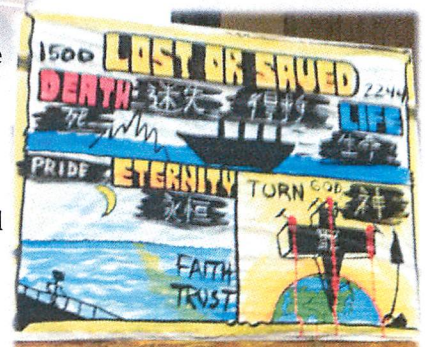 1500 LOST OR SAVED 2244
DEATH 迷失 得救 LIFE
死 生命
PRIDE ETERNITY TURN GOD 神
永恒
罪
FAITH
TRUST